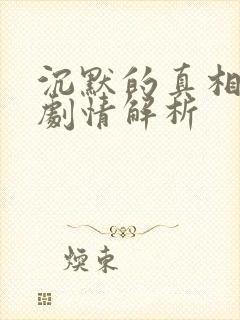 沉默的真相
劇情解析
煙束